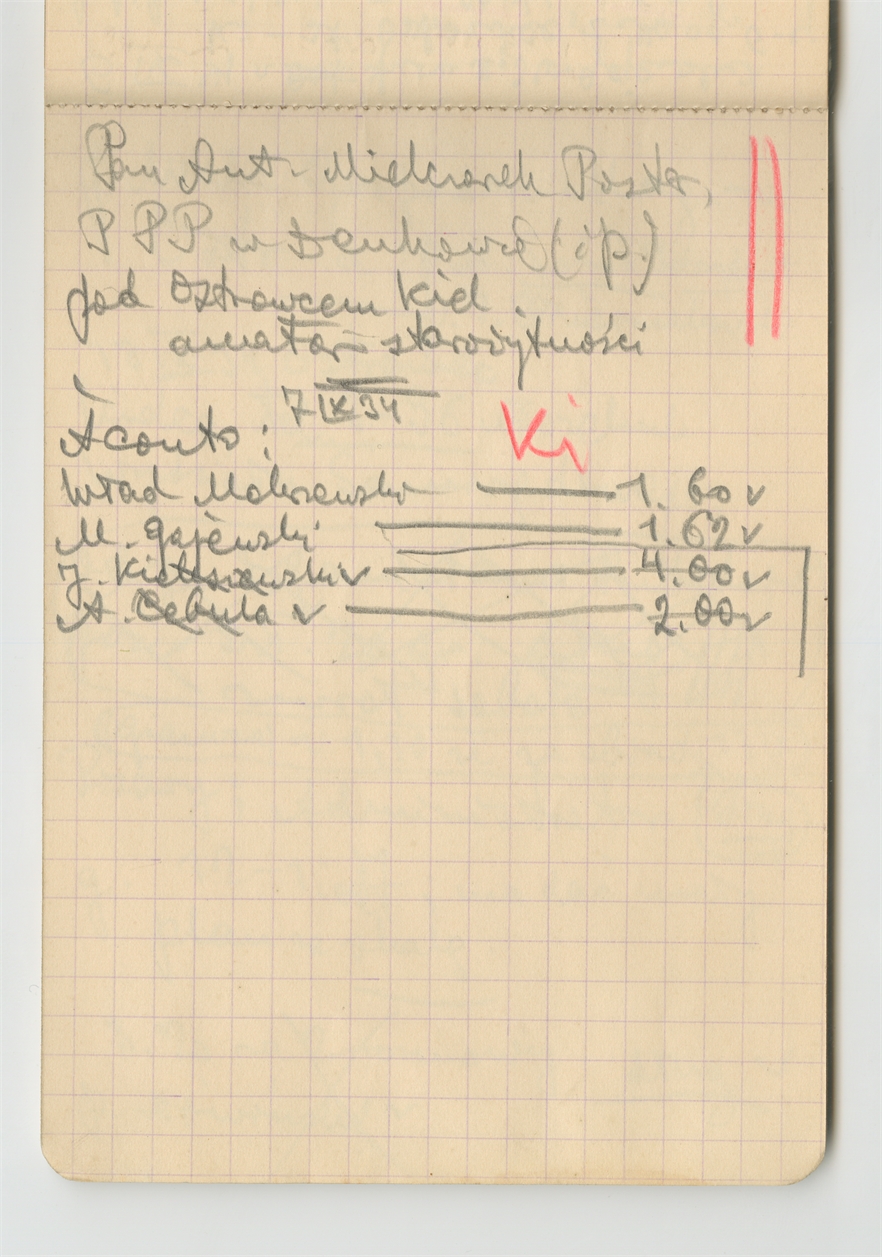 Pan Ant. Mielczarek Poster.
PPP w Denkowie (i p.)
pod Ostrowcem Kiel.
amator starożytności
7 IX 34
Àconto:
Ki
Wład Makszewski 1.60 v
M. Gajewski 1.62 v
J. v 4.00 v
A. Cebula v 2.00 v